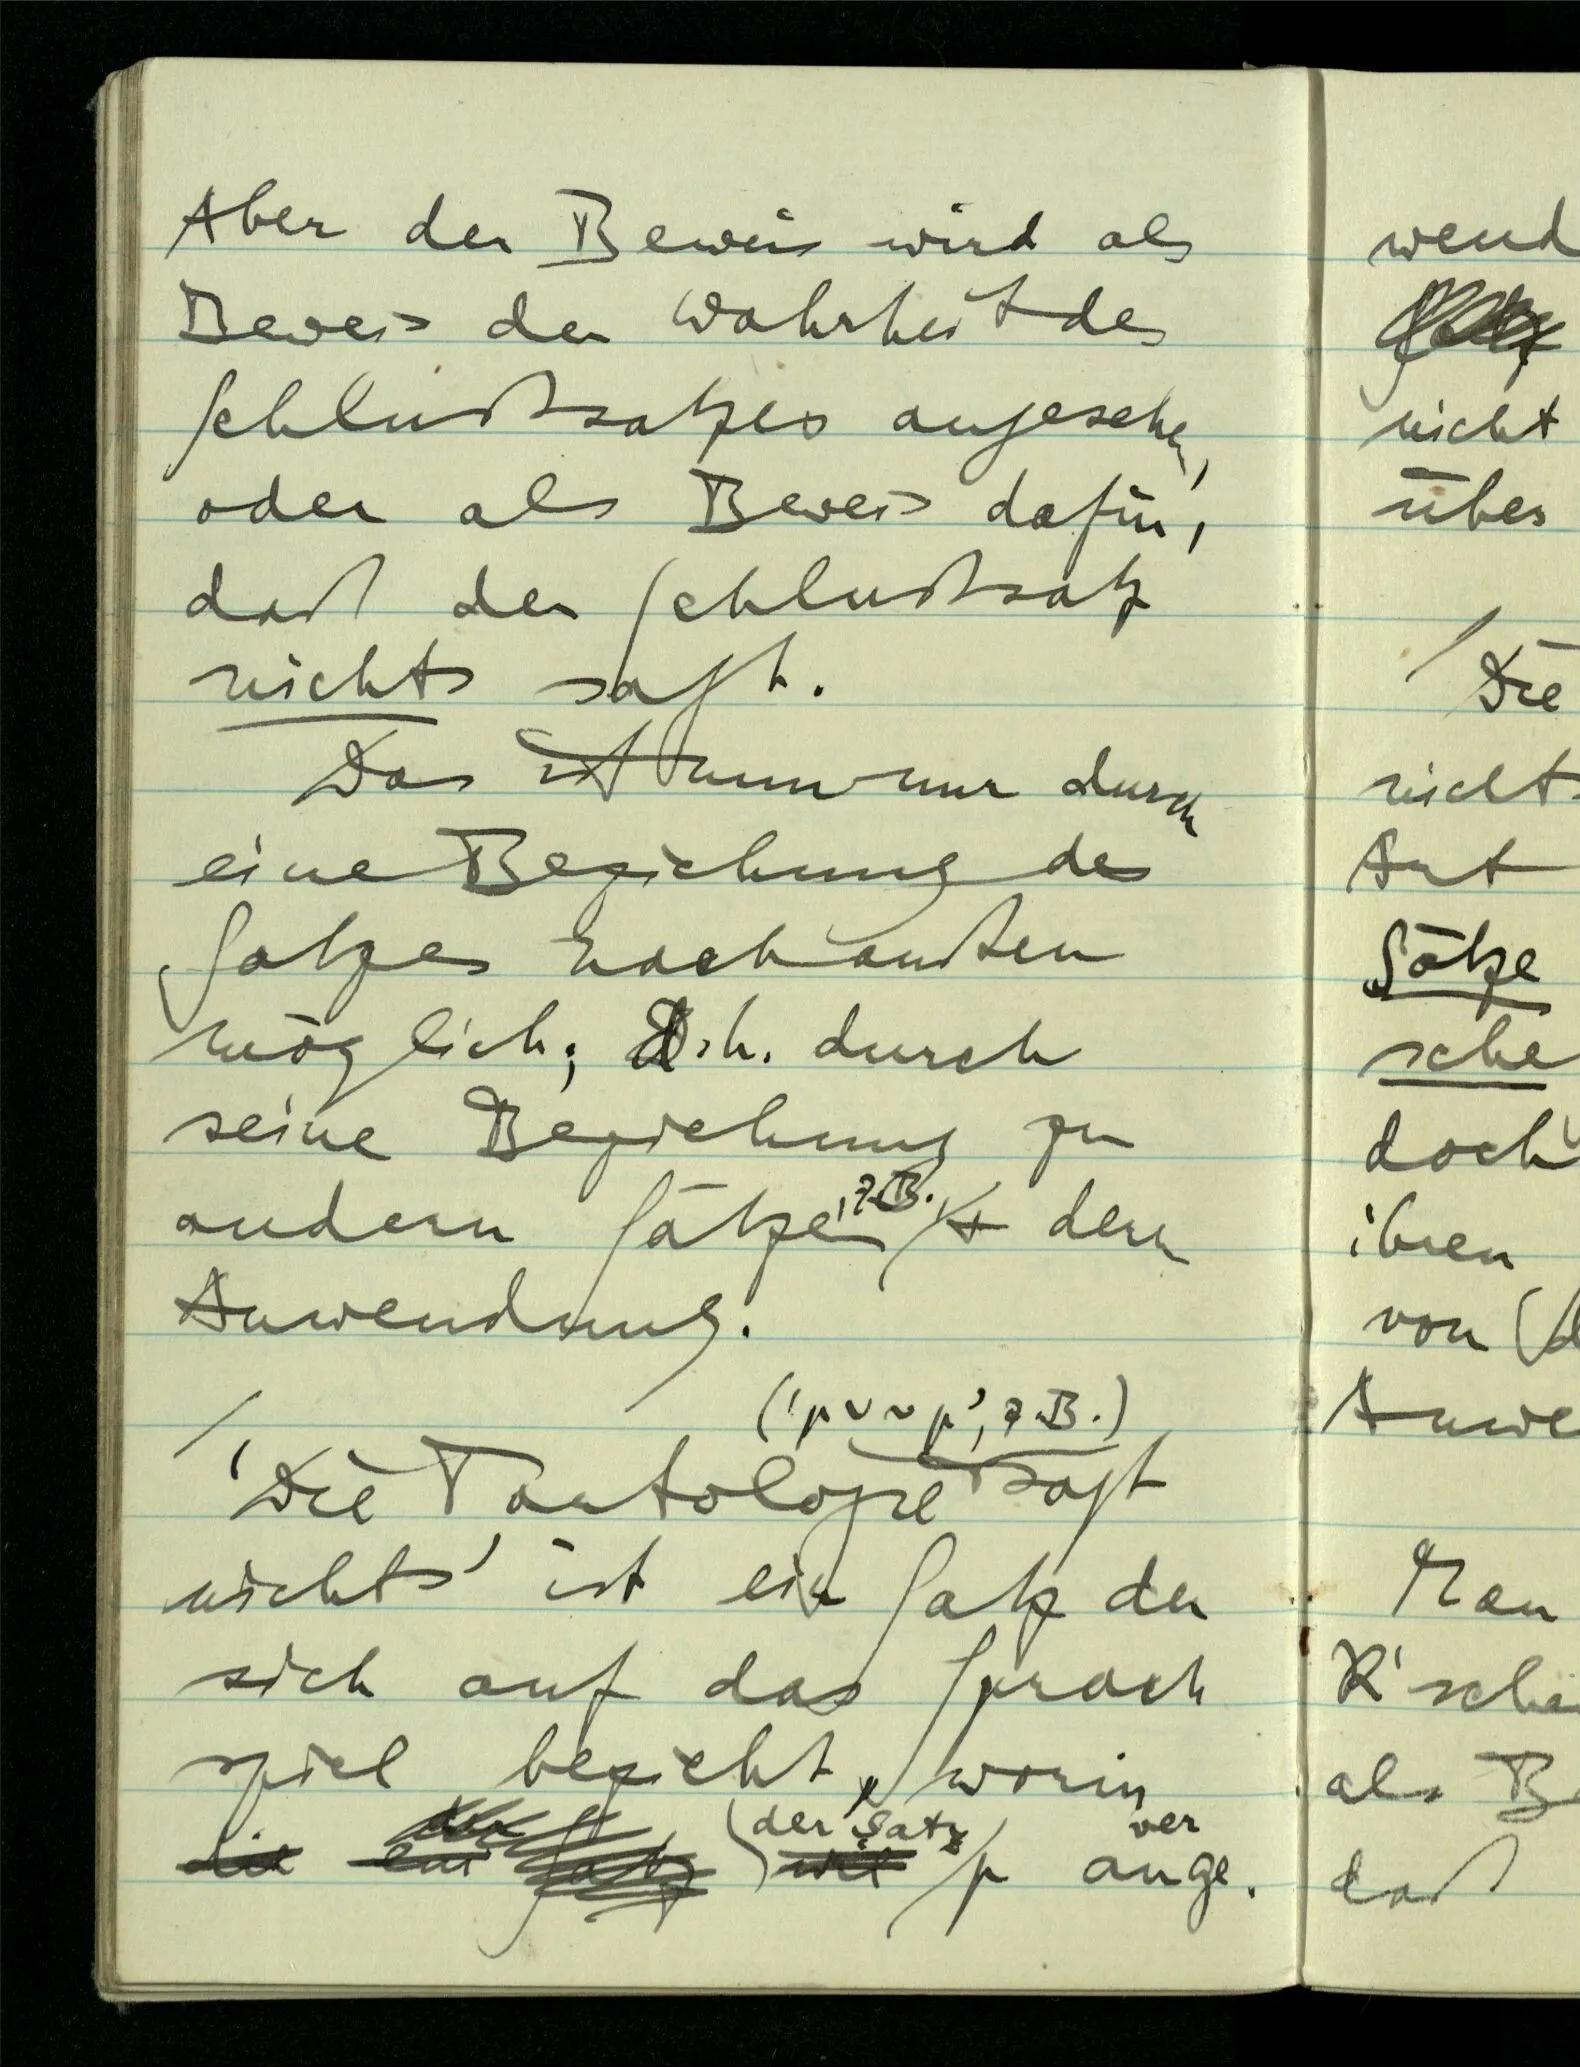 Aber der Beweis wird als
Beweis der Wahrheit des
Schlußsatzes angesehen,
oder als Beweis dafür,
daß der Schlußsatz
nichts sagt.
Das ist nun nur durch
eine Beziehung des
Satzes nach außen
möglich; d.h. durch
seine Beziehung zu
andern Sätzen, z.B. & deren
Anwendung.
('p ∨ ~ p', z.B.)
/ 'Die Tautologie sagt
nichts' ist ein Satz der
sich auf das Sprach
spiel bezieht, worin
der Satz p ver
die ein Satz wie ange.
wend
nicht
über
/ Die
nicht
Art
Sätze
sche
doch
ihren
von (d
Anwe
Man
R'sche
als B
daß